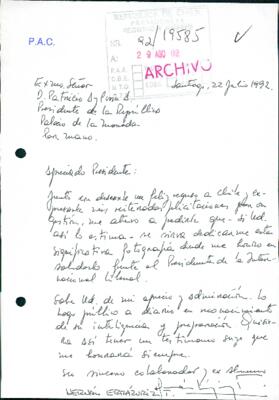 P.A.C.
REPUBLICA DE CHILE
NR. 92/19585
A: 29 AGO 92
P.A.A.
ARCHIVO
Santiago, 22 Julio 1992.
Excmo. Señor
D. Patricio Aylwin A.
Presidente de la República
Palacio de la Moneda
Por mano.
Apreciado Presidente:
Junto con desearle un feliz regreso a Chile y
mis reiteradas felicitaciones por su
gestión, me atrevo a pedirle que - si Ud.
así lo estima - se sirva dedicarme esta
significativa fotografía donde me honro en
saludarlo frente al Presidente de la Inter-
nacional Liberal.
Sabe Ud. de mi aprecio y admiración. Lo
hago público a diario en reconocimiento
de su inteligencia y preparación. Quisie-
ra así tener un testimonio suyo que
me honrará siempre.
Su sincero colaborador y ex alumno
HERNÁN ERRÁZURIZ T.